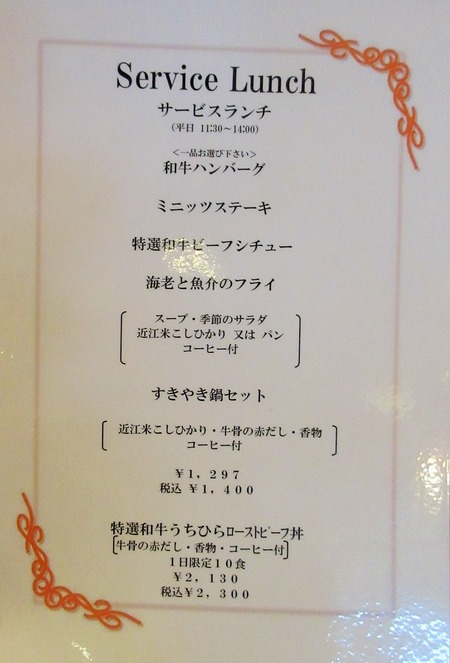 Service Lunch
サービスランチ
(平日 11:30～14:00)
＜一品お選び下さい＞
和牛ハンバーグ
ミニッツステーキ
特選和牛ビーフシチュー
海老と魚介のフライ
スープ・季節のサラダ
近江米こしひかり 又は パン
コーヒー付
すきやき鍋セット
近江米こしひかり・牛骨の赤だし・香物
コーヒー付
￥１，２９７
税込 ￥１，４００
特選和牛うちひらﾛｰｽﾄﾋﾞｰﾌ丼
[牛骨の赤だし・香物・コーヒー付]
１日限定１０食
￥２，１３０
税込￥２，３００